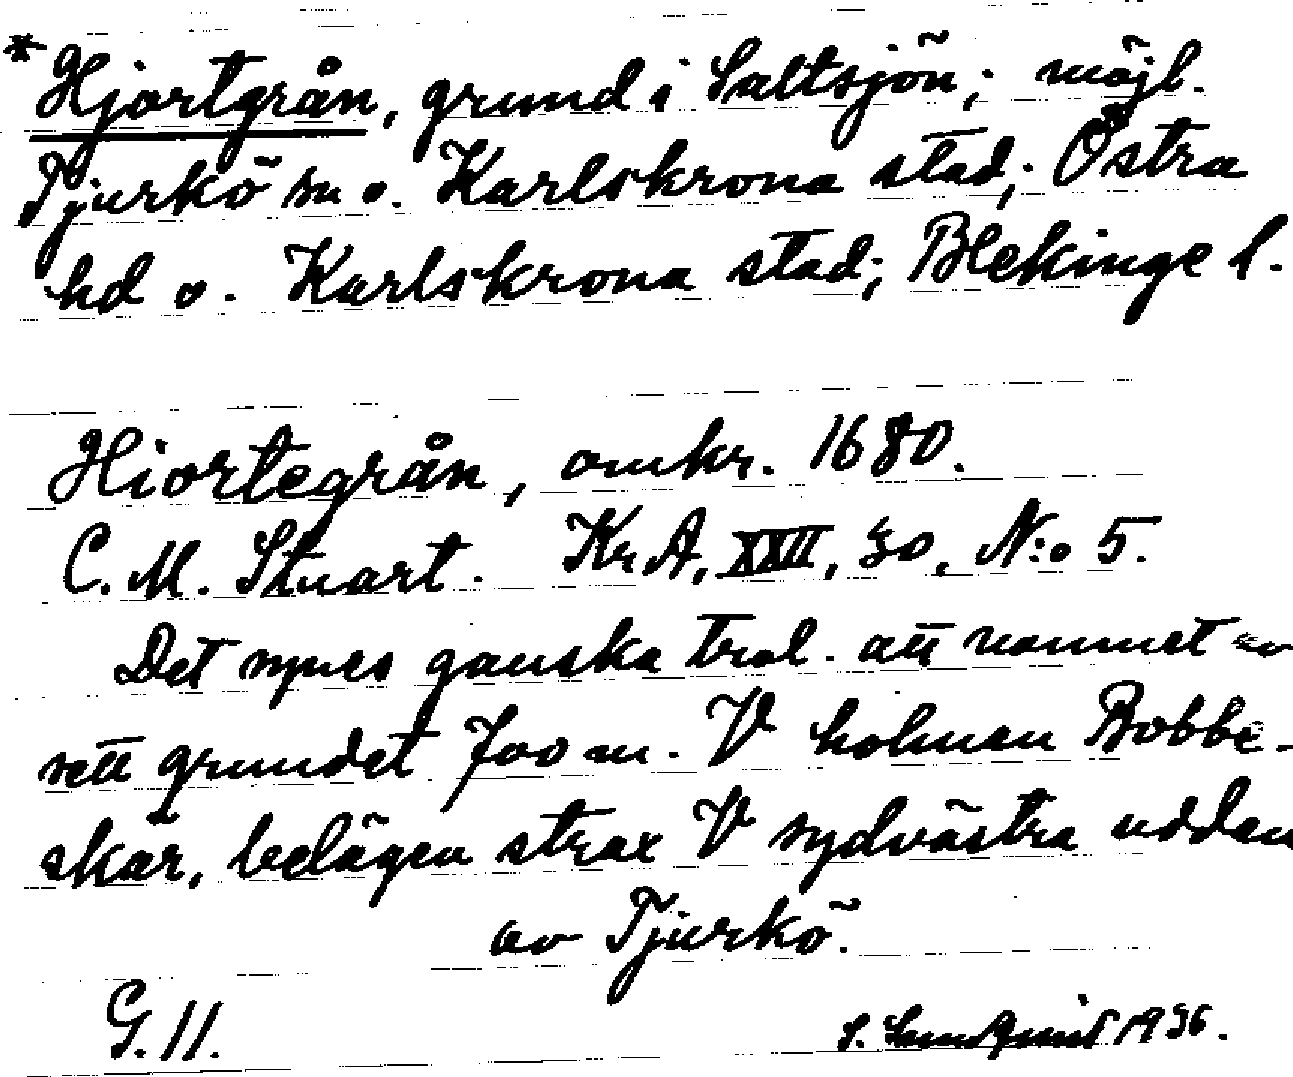 *Hjortgrån, grund i Saltsjön; möjl.
Tjurkö sn o. Karlskrona stad; Östra
hd o. Karlskrona stad; Blekinge l.
Hiortegrån, omkr. 1680.
C. M. Stuart. KrA, XXII, 30, N:o 5.
Det synes ganska trol. att namnet av
sett grundet 700 m. V holmen Bobbe-
skär, belägen strax V sydvästra udden
av Tjurkö.
G. 11.
S. Sundquist 1936.